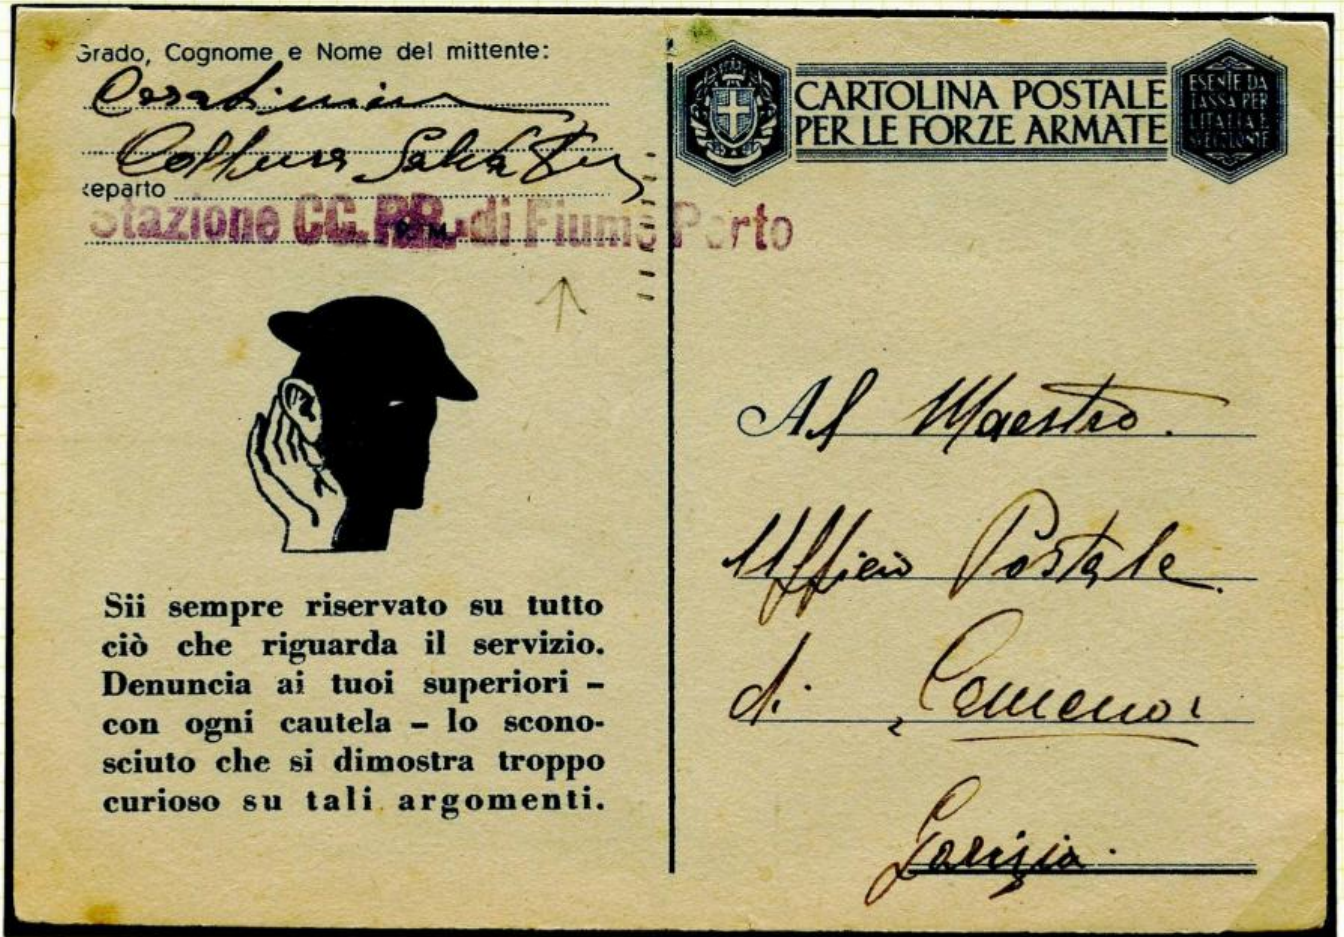 Grado, Cognome e Nome del mittente:
Carabiniere
Salvatore
Reparto
Stazione CC. RR. di Fiume Porto
CARTOLINA POSTALE
PER LE FORZE ARMATE
ESENTE DA
TASSA PER
L'ITALIA E
Sii sempre riservato su tutto
ciò che riguarda il servizio.
Denuncia ai tuoi superiori –
con ogni cautela – lo scono-
sciuto che si dimostra troppo
curioso su tali argomenti.
Al Maestro.
Ufficio Postale
di Comeno
Gorizia.